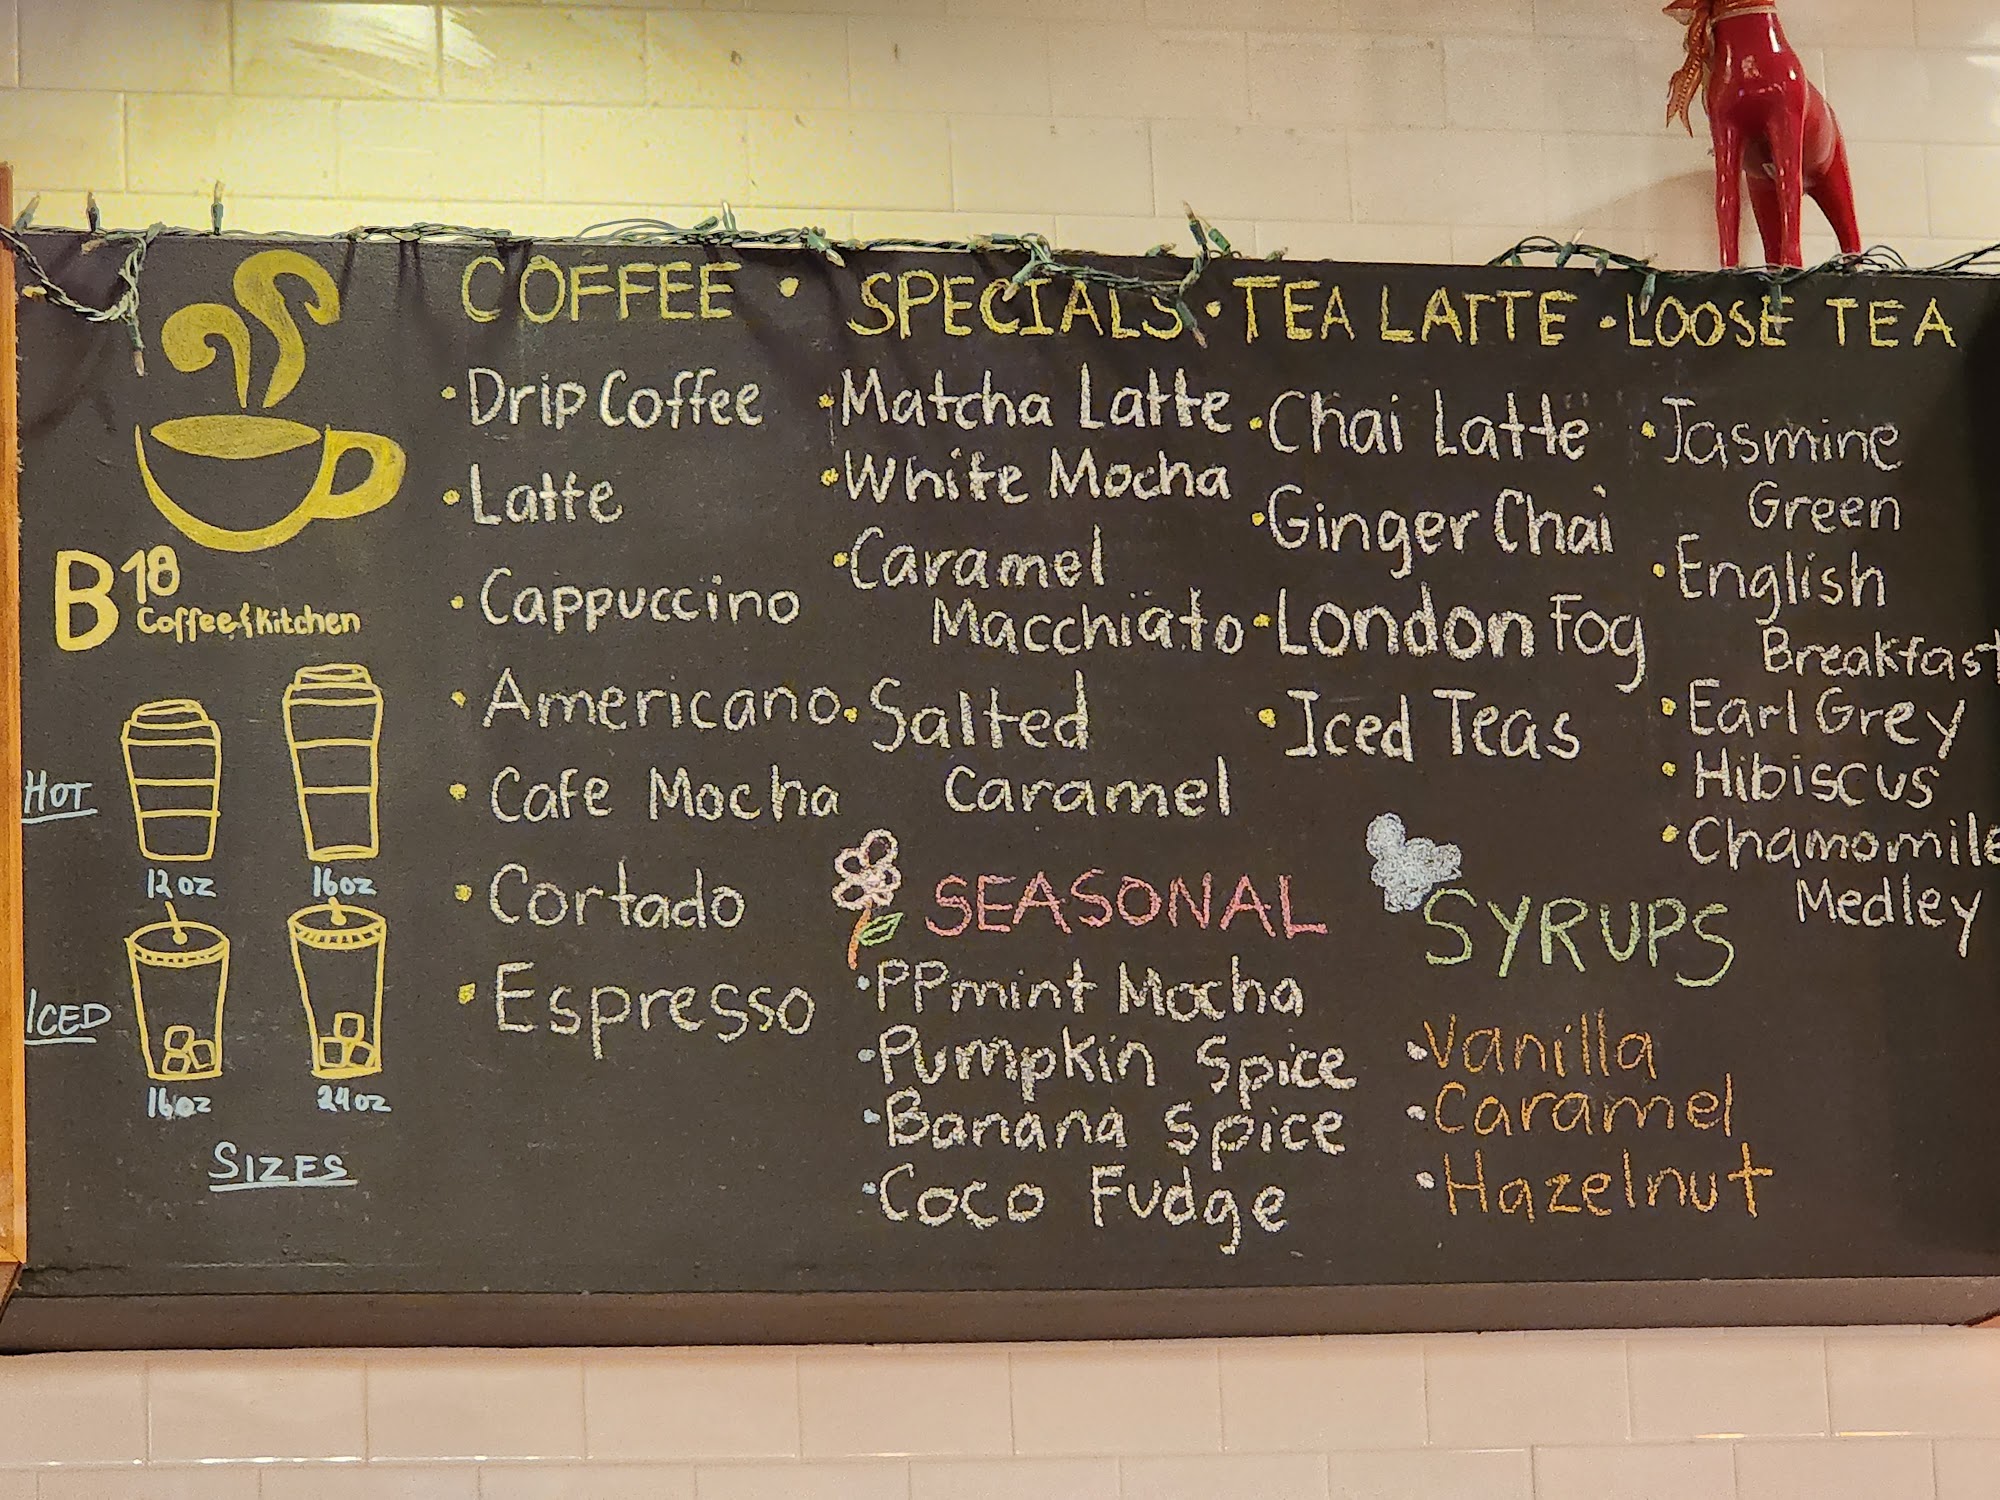 COFFEE • SPECIALS • TEA LATTE • LOOSE TEA
B18
Coffee & Kitchen
HOT
12 oz
16oz
ICED
16oz
24oz
SIZES
• Drip Coffee
• Latte
• Cappuccino
• Americano
• Cafe Mocha
• Cortado
• Espresso
• Matcha Latte
• White Mocha
• Caramel
Macchiato
• Salted
Caramel
SEASONAL
• PPmint Mocha
• Pumpkin Spice
• Banana Spice
• Coco Fudge
• Chai Latte
• Ginger Chai
• London Fog
• Iced Teas
SYRUPS
• Vanilla
• Caramel
• Hazelnut
• Jasmine
Green
• English
Breakfast
• Earl Grey
• Hibiscus
• Chamomile
Medley